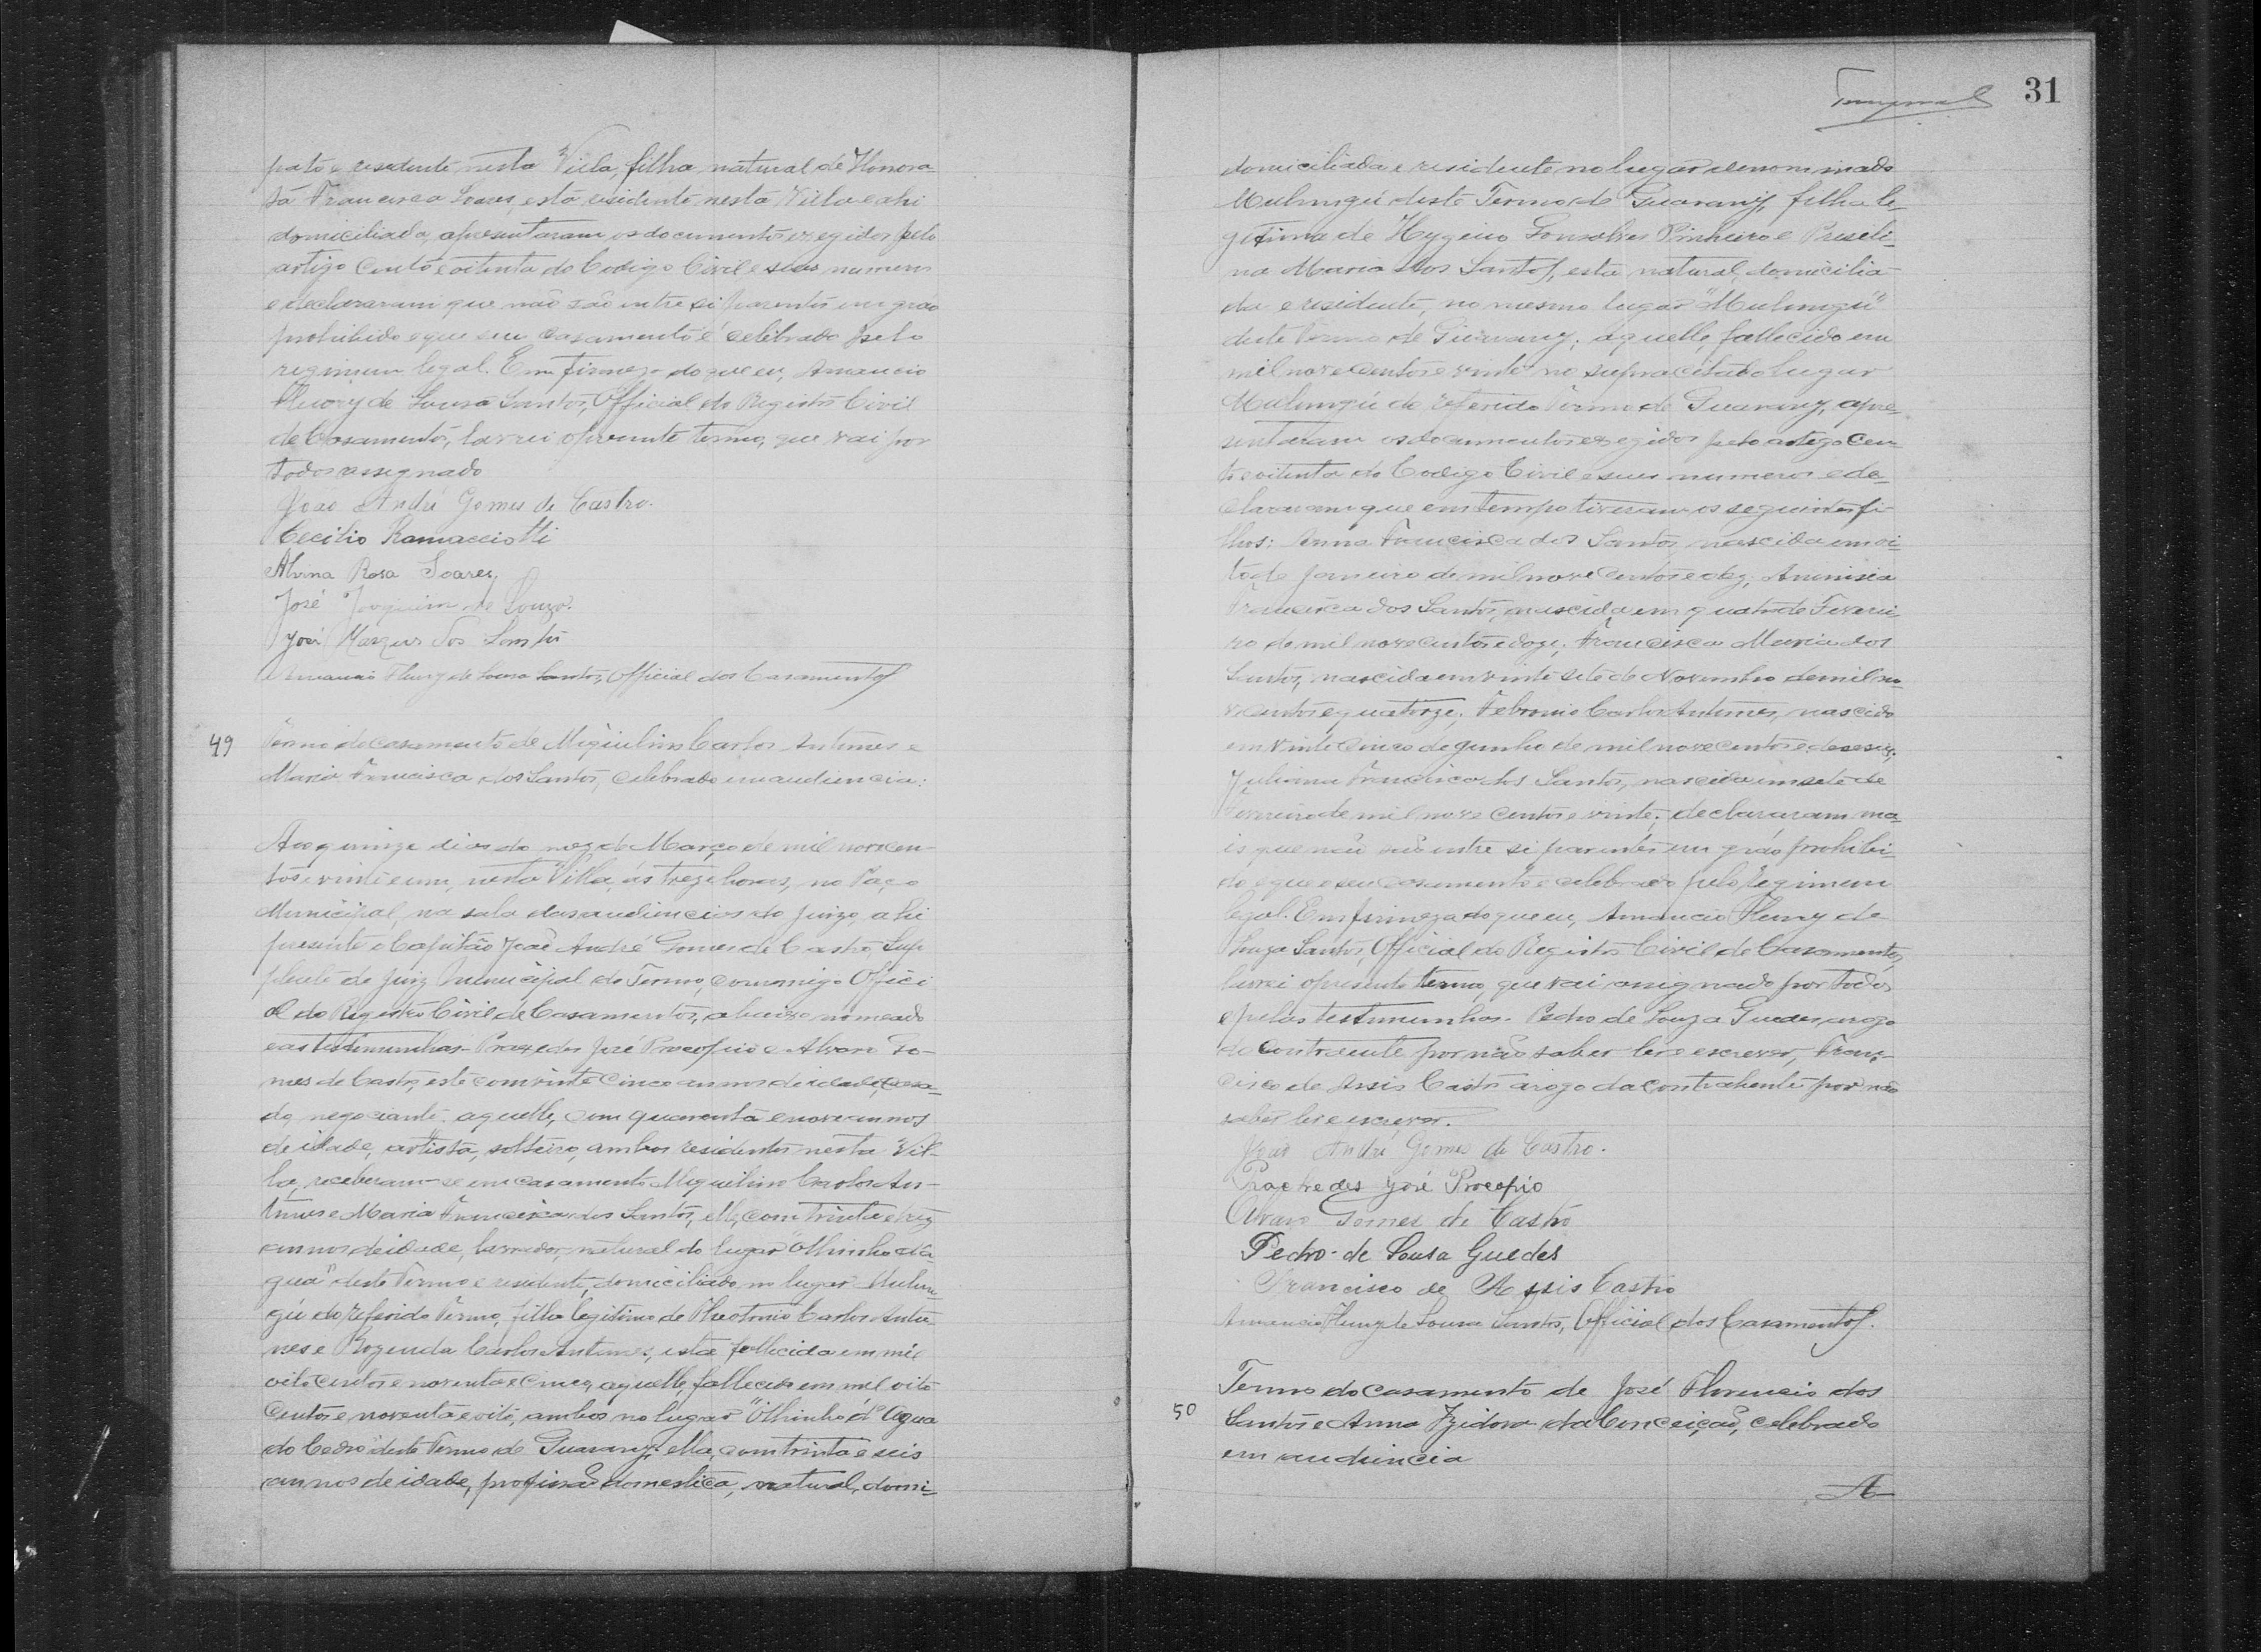 pato e residente nesta Villa, filha natural de Honora-
ta Francisca Soares, esta residente nesta Villa e ahi
domiciliada, apresentaram os documentos exegidos pelo
artigo cento e oitenta do Codigo Civil e seus numeros
e declararam que não são entre si parentes em gráo
prohibido e que seu casamento é celebrado pelo
regimem legal. Em firmeza do que eu, Amancio
Fleury de Sousa Santos, Official do Registro Civil
de Casamentos, lavrei o presente termo, que vai por
todos assignado
João André Gomes de Castro.
Cecilio Ramacciotti
Alvina Rosa Soares
José Joaquim de Souza.
José Marques dos Santos
Amancio Fleury de Sousa Santos, Official dos Casamentos
49
Termo do casamento de Miguilino Carlos Antunes e
Maria Francisca dos Santos, celebrado em audiencia:
Aos quinze dias do mez de Março de mil novecen-
tos e vinte e um, nesta Villa, ás treze horas, no Paço
Municipal, na sala das audiencias do Juizo, ahi
presente o Capitão João André Gomes de Castro, Sup
plente de Juiz Municipal do Termo, commigo Offici
al do Registro Civil de Casamentos, abaixo nomeado
e as testimunhas Praxedes José Procopio e Alvaro Go-
mes de Castro, este com vinte cinco annos de idade, casa-
do, negociante, aquelle, com quarenta e nove annos
de idade, artista, solteiro, ambos residentes nesta Vil-
la, receberam-se em casamento Miguilino Carlos An-
tunes e Maria Francisca dos Santos, elle, com trinta e trez
annos de idade, lavrador, natural do lugar "Olhinho d'a
gua" deste Termo e residente, domiciliado no lugar Mulun-
gú do referido Termo, filho legitimo de Theotonio Carlos Antu-
nes e Rozenda Carlos Antunes, esta fallecida em mil
oito centos e noventa e cinco, aquelle, fallecido em mil oito
centos e noventa e oito, ambos no lugar "Olhinho d'Agua
do Cedro" deste Termo de Guarany; ella, com trinta e seis
annos de idade, profissão domestica, natural, domi-
31
domiciliada e residente no lugar denominado
Mulungú deste Termo de Guarany, filha le-
gitima de Hygino Gonsalves Pinheiro e Priscili-
na Maria dos Santos, esta natural, domicilia-
da e residente, no mesmo lugar "Mulungú"
deste Termo de Guarany; aquelle, fallecido em
mil novecentos e vinte no supracitado lugar
Mulungú do referido Termo de Guarany, apre-
sentaram os documentos exegidos pelo artigo cen
to e oitenta do Codigo Civil e seus numeros e de-
clararam que em tempo tiveram os seguintes fi-
lhos: Anna Francisca dos Santos, nascida em oi-
to de Janeiro de mil nove centos e dez; Aunisia
Francisca dos Santos, nascida em quatro de Feverei-
ro de mil novecentos e doze; Francisca Maria dos
Santos, nascida em vinte sete de Novembro de mil no-
vecentos e quatorze; Febronio Carlos Antunes, nascido
em vinte cinco de Junho de mil nove centos e deseseis;
Juliana Francisca dos Santos, nascida em sete de
Fevereiro de mil nove centos e vinte; declararam ma-
is que não são entre si parentes em gráo prohibi-
do e que o seu casamento é celebrado pelo regimem
legal. Em firmeza do que eu, Amancio Fleury de
Souza Santos, Official do Registro Civil de Casamentos,
lavrei o presente termo, que vai assignado por todos
e pelas testimunhas. Pedro de Souza Guedes, arogo
do contraente por não saber ler e escrever, Fran-
cisco de Assis Castro arogo da contrahente por não
saber ler e escrever.
João André Gomes de Castro.
Prachedes José Procopio
Alvaro Gomes de Castro
Pedro de Sousa Guedes
Francisco de Assis Castro
Amancio Fleury de Sousa Santos, Official dos Casamentos.
50
Termo do casamento de José Florencio dos
Santos e Anna Izidora da Conceição, celebrado
em audiencia
A-